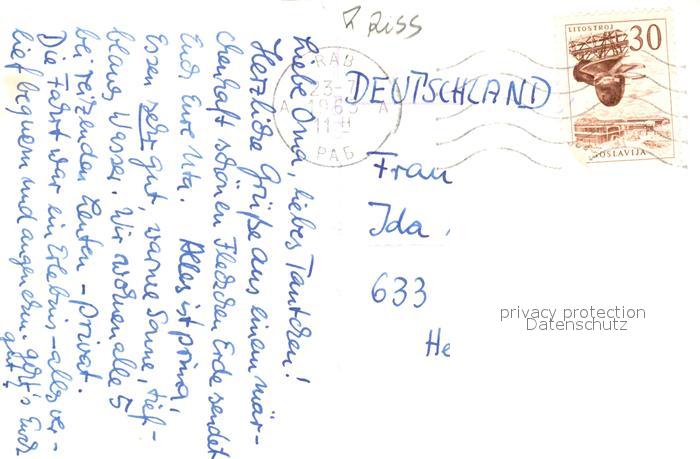 Riss
LITOSTROJ
30
JUGOSLAVIJA
RAB
23-
1963
A A
11 H
РАБ
DEUTSCHLAND
Frau
Ida
633
He
privacy protection
Datenschutz
Liebe Oma, liebes Tantchen!
Herzliche Grüße aus einem mär-
chenhaft schönen Fleckchen Erde sendet
Euch Eure Uta. Alles ist prima,
Essen sehr gut, warme Sonne, tief-
blaues Wasser. Wir wohnen alle 5
bei reizenden Leuten - privat.
Die Fahrt war ein Erlebnis - alles ver-
lief bequem und angenehm. geht's Euch
gut?